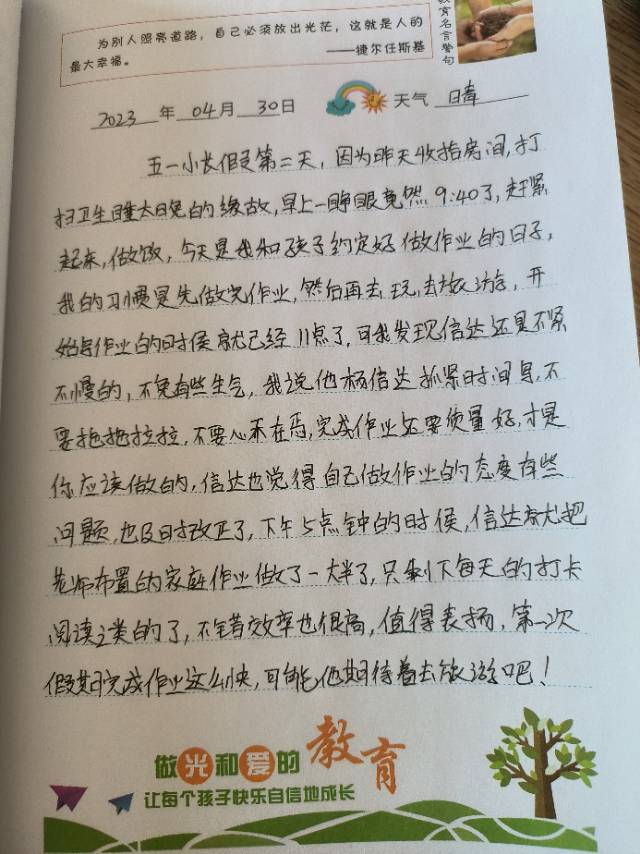 为别人照亮道路，自己必须放出光芒，这就是人的
最大幸福。
——捷尔任斯基
教育名言警句
2023 年 04 月 30 日 天气 晴
五一小长假第二天，因为昨天收拾房间，打
扫卫生睡太晚的缘故，早上一睁眼竟然 9:40了，赶紧
起来，做饭，今天是我和孩子约定好做作业的日子，
我的习惯是先做完作业，然后再去玩，去旅游，开
始写作业的时候就已经11点了，可我发现信达还是不紧
不慢的，不免有些生气，我说他杨信达抓紧时间身，不
要拖拖拉拉，不要心不在焉，完成作业还要质量好，才是
你应该做的，信达也觉得自己做作业的态度有些
问题，也及时改正了，下午5点钟的时候，信达就把
老师布置的家庭作业做了一大半了，只剩下每天的打卡
阅读之类的了，不错效率也很高，值得表扬，第一次
假期完成作业这么快，可能他期待着去旅游吧！
做光和爱的教育
让每个孩子快乐自信地成长